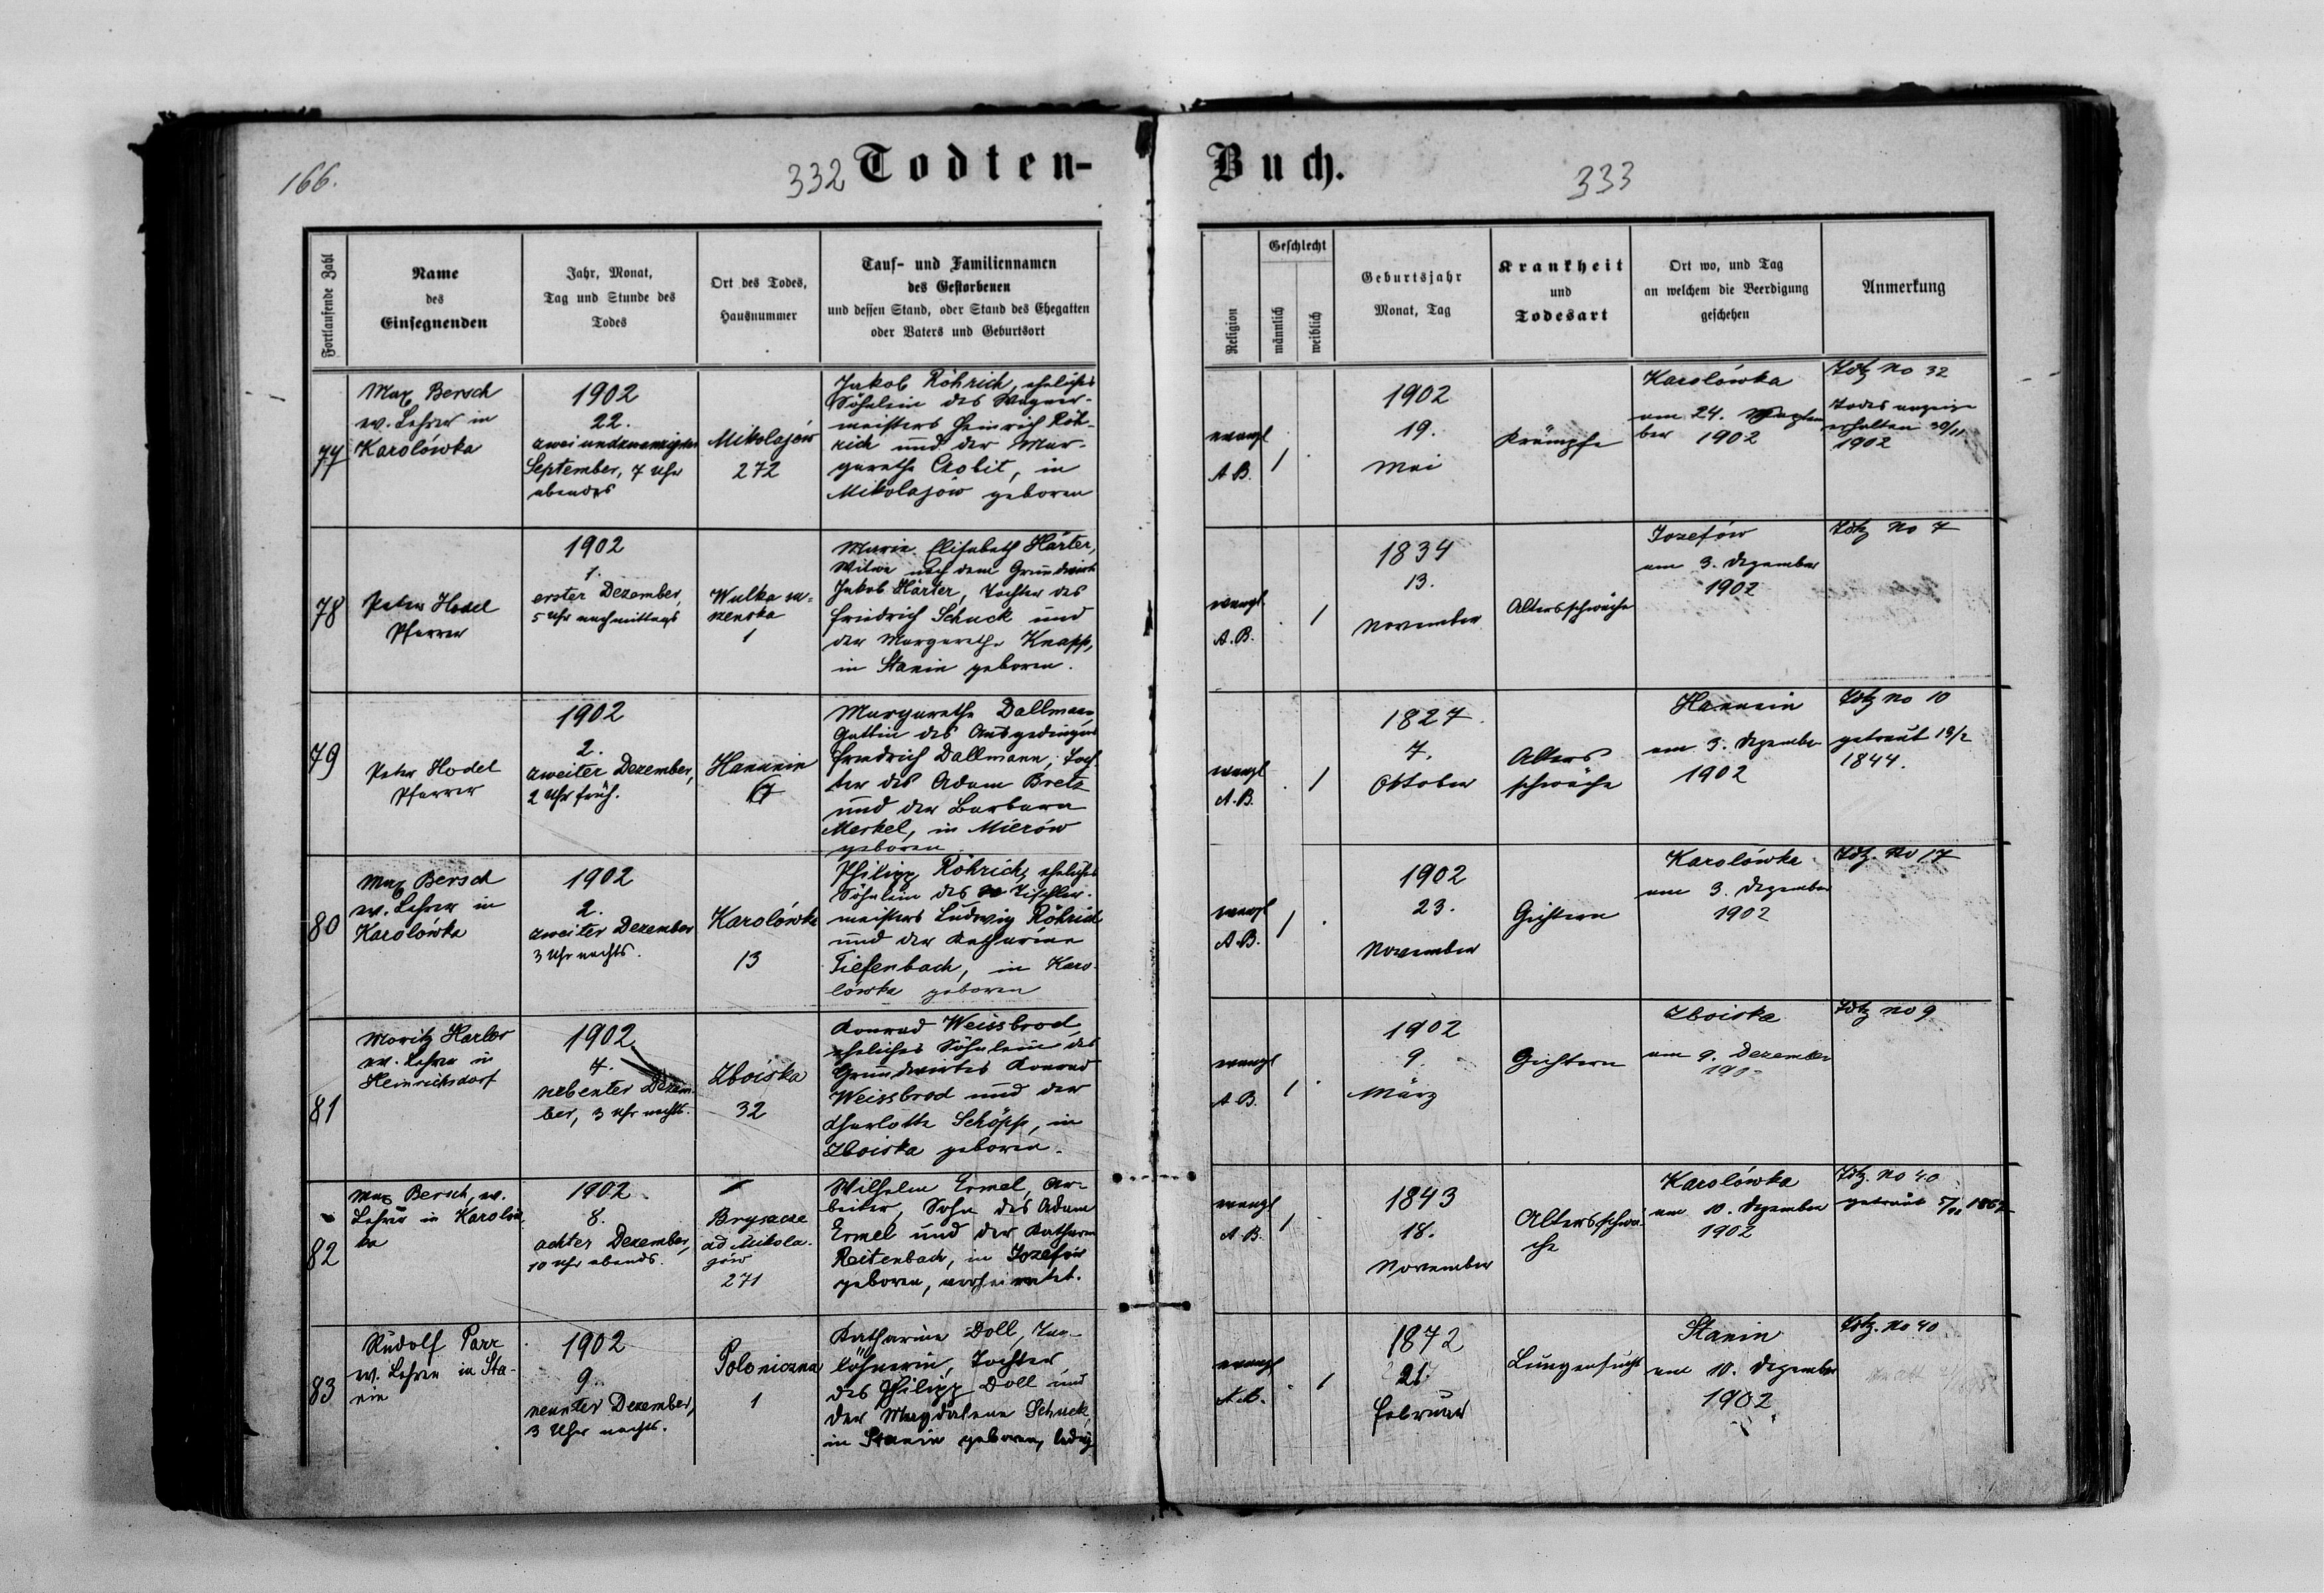 166.
332 Todten-
Buch.
333
Fortlaufende Zahl
Name
des
Einsegnenden
Jahr, Monat,
Tag und Stunde des
Todes
Ort des Todes,
Hausnummer
Tauf- und Familiennamen
des Gestorbenen
und dessen Stand, oder Stand des Ehegatten
oder Vaters und Geburtsort
Religion
Geschlecht
männlich
weiblich
Geburtsjahr
Monat, Tag
Krankheit
und
Todesart
Ort wo, und Tag
an welchem die Beerdigung
geschehen
Anmerkung
77
Max Bersch
ev. Lehrer in
Karolówka
1902
22.
zweiundzwanzigster
September, 7 Uhr
abends
Mikolajów
272
Jakob Röhrich, eheliches
Söhnlein des Wagner-
meisters Heinrich Röh-
rich und der Mar-
garethe Czobit, in
Mikolajów geboren
evangl
A.B.
1 .
1902
19.
Mai
Krämpfe
Karolówka
am 24. Septem
ber 1902
Totz No 32
Todes anzeige
erhalten 30/11
1902
78
Peter Hodel
Pfarrer
1902
1.
erster Dezember,
5 Uhr nachmittags
Wulka su-
szenska
1
Marie Elisabeth Härter,
Witwe nach dem Grundwirth
Jakob Härter, Tochter des
Friedrich Schuck und
der Margarethe Knapp,
in Stanin geboren.
evangl.
A.B.
. 1
1834
13.
November
Altersschwäche
Jozefów
am 3. Dezember
1902
Totz No 7
79
Peter Hodel
Pfarrer
1902
2.
zweiter Dezember,
2 Uhr früh.
Hanunin
67
Margarethe Dallmann,
Gattin des Ausgedingers
Friedrich Dallmann, Toch-
ter des Adam Bretz
und der Barbara
Merkel, in Mierów
geboren
evangl
A.B.
. 1
1827
7.
Oktober
Alters
schwäche
Hanunin
am 3. Dezember
1902
Totz No 10
getraut 13/2
1844.
80
Max Bersch
ev. Lehrer in
Karolówka
1902
2.
zweiter Dezember
3 Uhr nachts.
Karolówka
13
Philipp Röhrich, eheliches
Söhnlein des Tischler-
meisters Ludwig Röhrich
und der Katharine
Tiefenbach, in Karo-
lówka geboren
evangl
A.B.
1 .
1902
23.
November
Gichtern
Karolówka
am 3. Dezember
1902
Totz. No 17
81
Moritz Harlos
ev. Lehrer in
Heinrichsdorf
1902
7.
siebenter Dezem-
ber, 3 Uhr nachts.
Zboiska
32
Konrad Weissbrod,
eheliches Söhnlein des
Grundwirtes Konrad
Weissbrod und der
Charlotte Schöpp, in
Zboiska geboren.
evangl
A.B.
1 .
1902
9.
März
Gichtern
Zboiska
am 9. Dezember
Totz No 9
82
Max Bersch, ev.
Lehrer in Karolów
ka
1902
8.
achter Dezember,
10 Uhr abends.
ad Mikola-
jów
271
Wilhelm Ermel, Ar-
beiter, Sohn des Adam
Ermel und der Katharine
Reitenbach, in Jozefów
geboren, verheiratet.
evangl
A.B.
1 .
1843
18.
November
Altersschwä-
che
Karolówka
am 10. Dezember
1902
Totz. No 40
getraut
83
Rudolf Parr
ev. Lehrer in Sta-
nin
1902
9.
neunter Dezember,
3 Uhr nachts.
Poloniczna
1
Katharine Doll, Tag-
löhnerin, Tochter
des Philipp Doll und
der Magdalene Schuck,
in Stanin geboren, ledig
evangl
A.B.
. 1
1872
21.
Februar
Lungensucht
Stanin
am 10. Dezember
1902
Totz. No 40